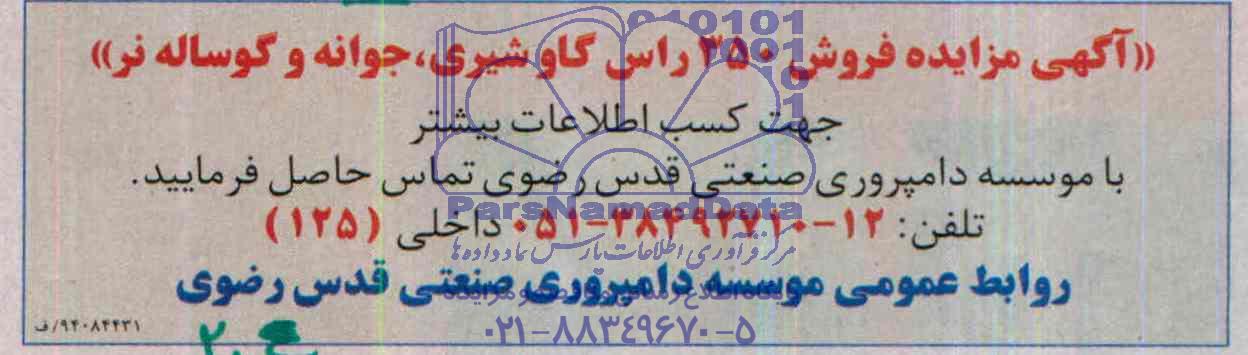 «آگهی مزایده فروش ۳۵۰ راس گاو شیری، جوانه و گوساله نر»
جهت کسب اطلاعات بیشتر
با موسسه دامپروری صنعتی قدس رضوی تماس حاصل فرمایید.
تلفن: ۱۲-۳۸۴۹۲۷۱۰-۰۵۱ داخلی (۱۲۵)
روابط عمومی موسسه دامپروری صنعتی قدس رضوی
۹۴۰۸۴۴۳۱/ف
ParsNamadData
مرکز فرآوری اطلاعات پارس نماد داده ها
۰۲۱-۸۸۳۴۹۶۷۰-۵